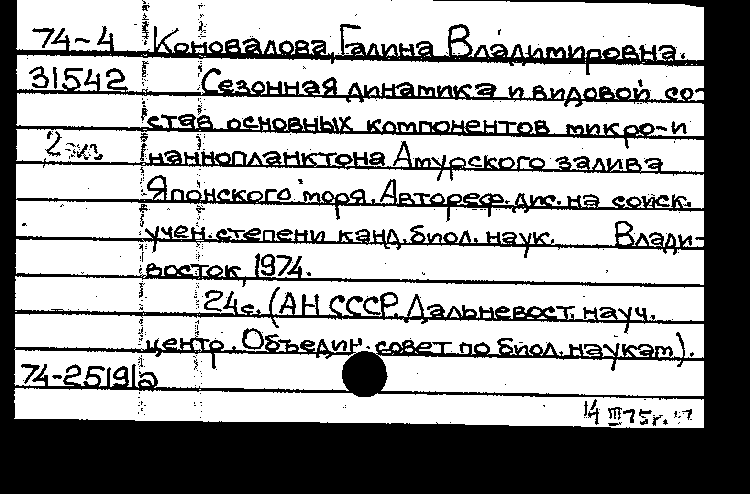 74-4 Коновалова, Галина Владимировна.
31542 Сезонная динамика и видовой со-
став основных компонентов микро- и
2 экз наннопланктона Амурского залива
Японского моря. Автореф. дис. на соиск.
учен. степени канд. биол. наук. Влади-
восток, 1974.
24с. (АН СССР. Дальневост. науч.
центр. Объедин. совет по биол. наукам).
74-25191а
14 III 75г.